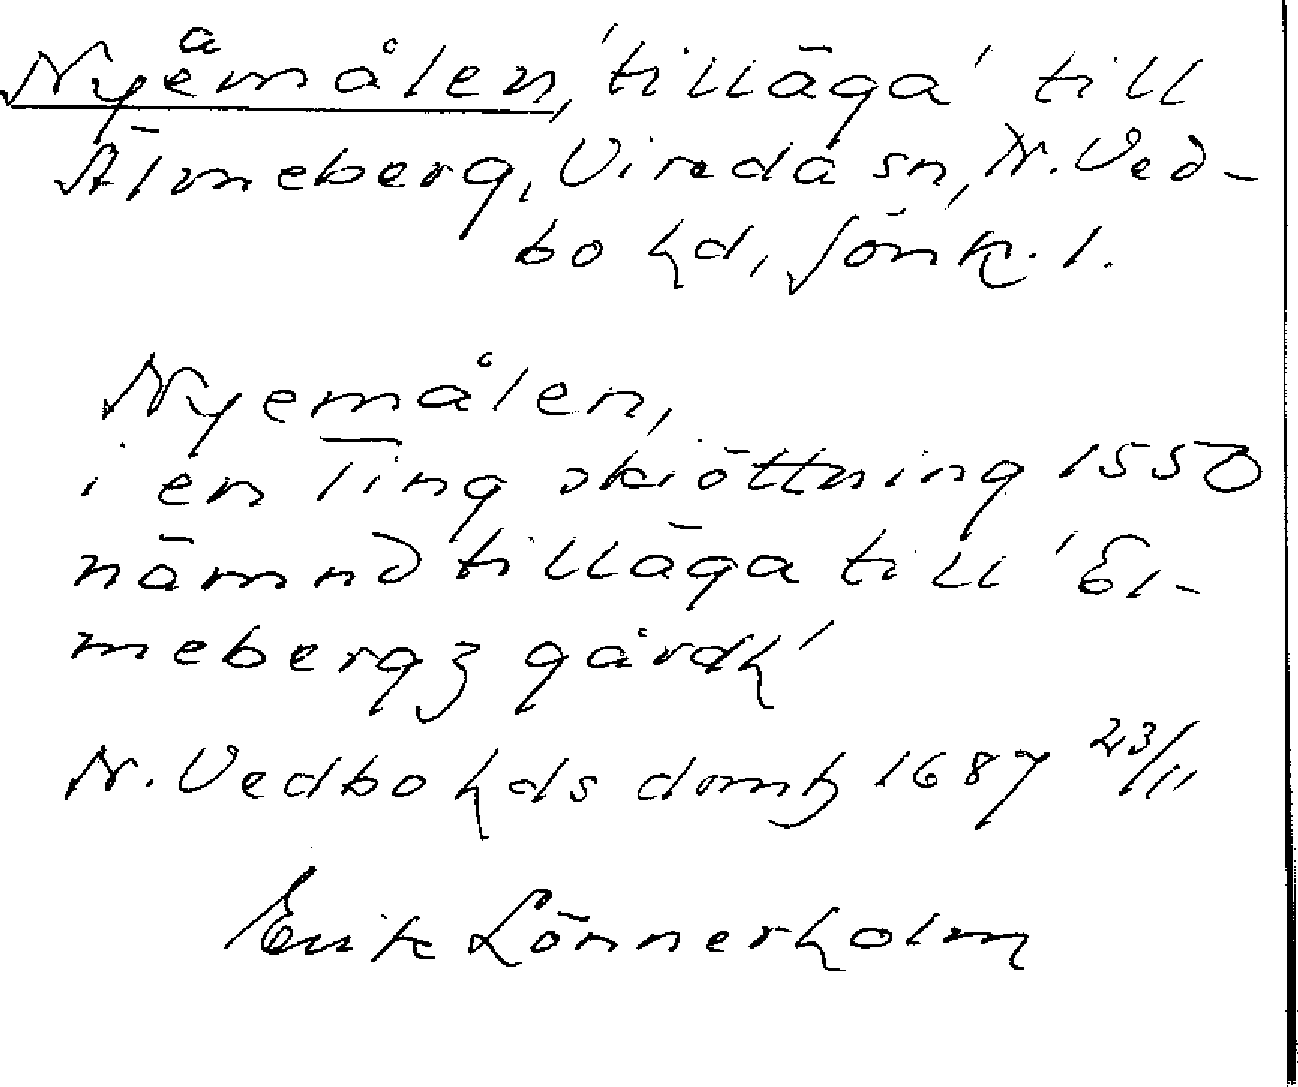 a
Nyemålen, 'tilläga' till
Älmeberg, Vireda sn, N. Ved-
bo hd, Jönk. l.
Nyemålen,
i en Ting skiöttning 1550
nämnd tilläga till 'El-
mebergz gårdh'
N. Vedbo hds domb 1687 23/11
Erik Lönnerholm